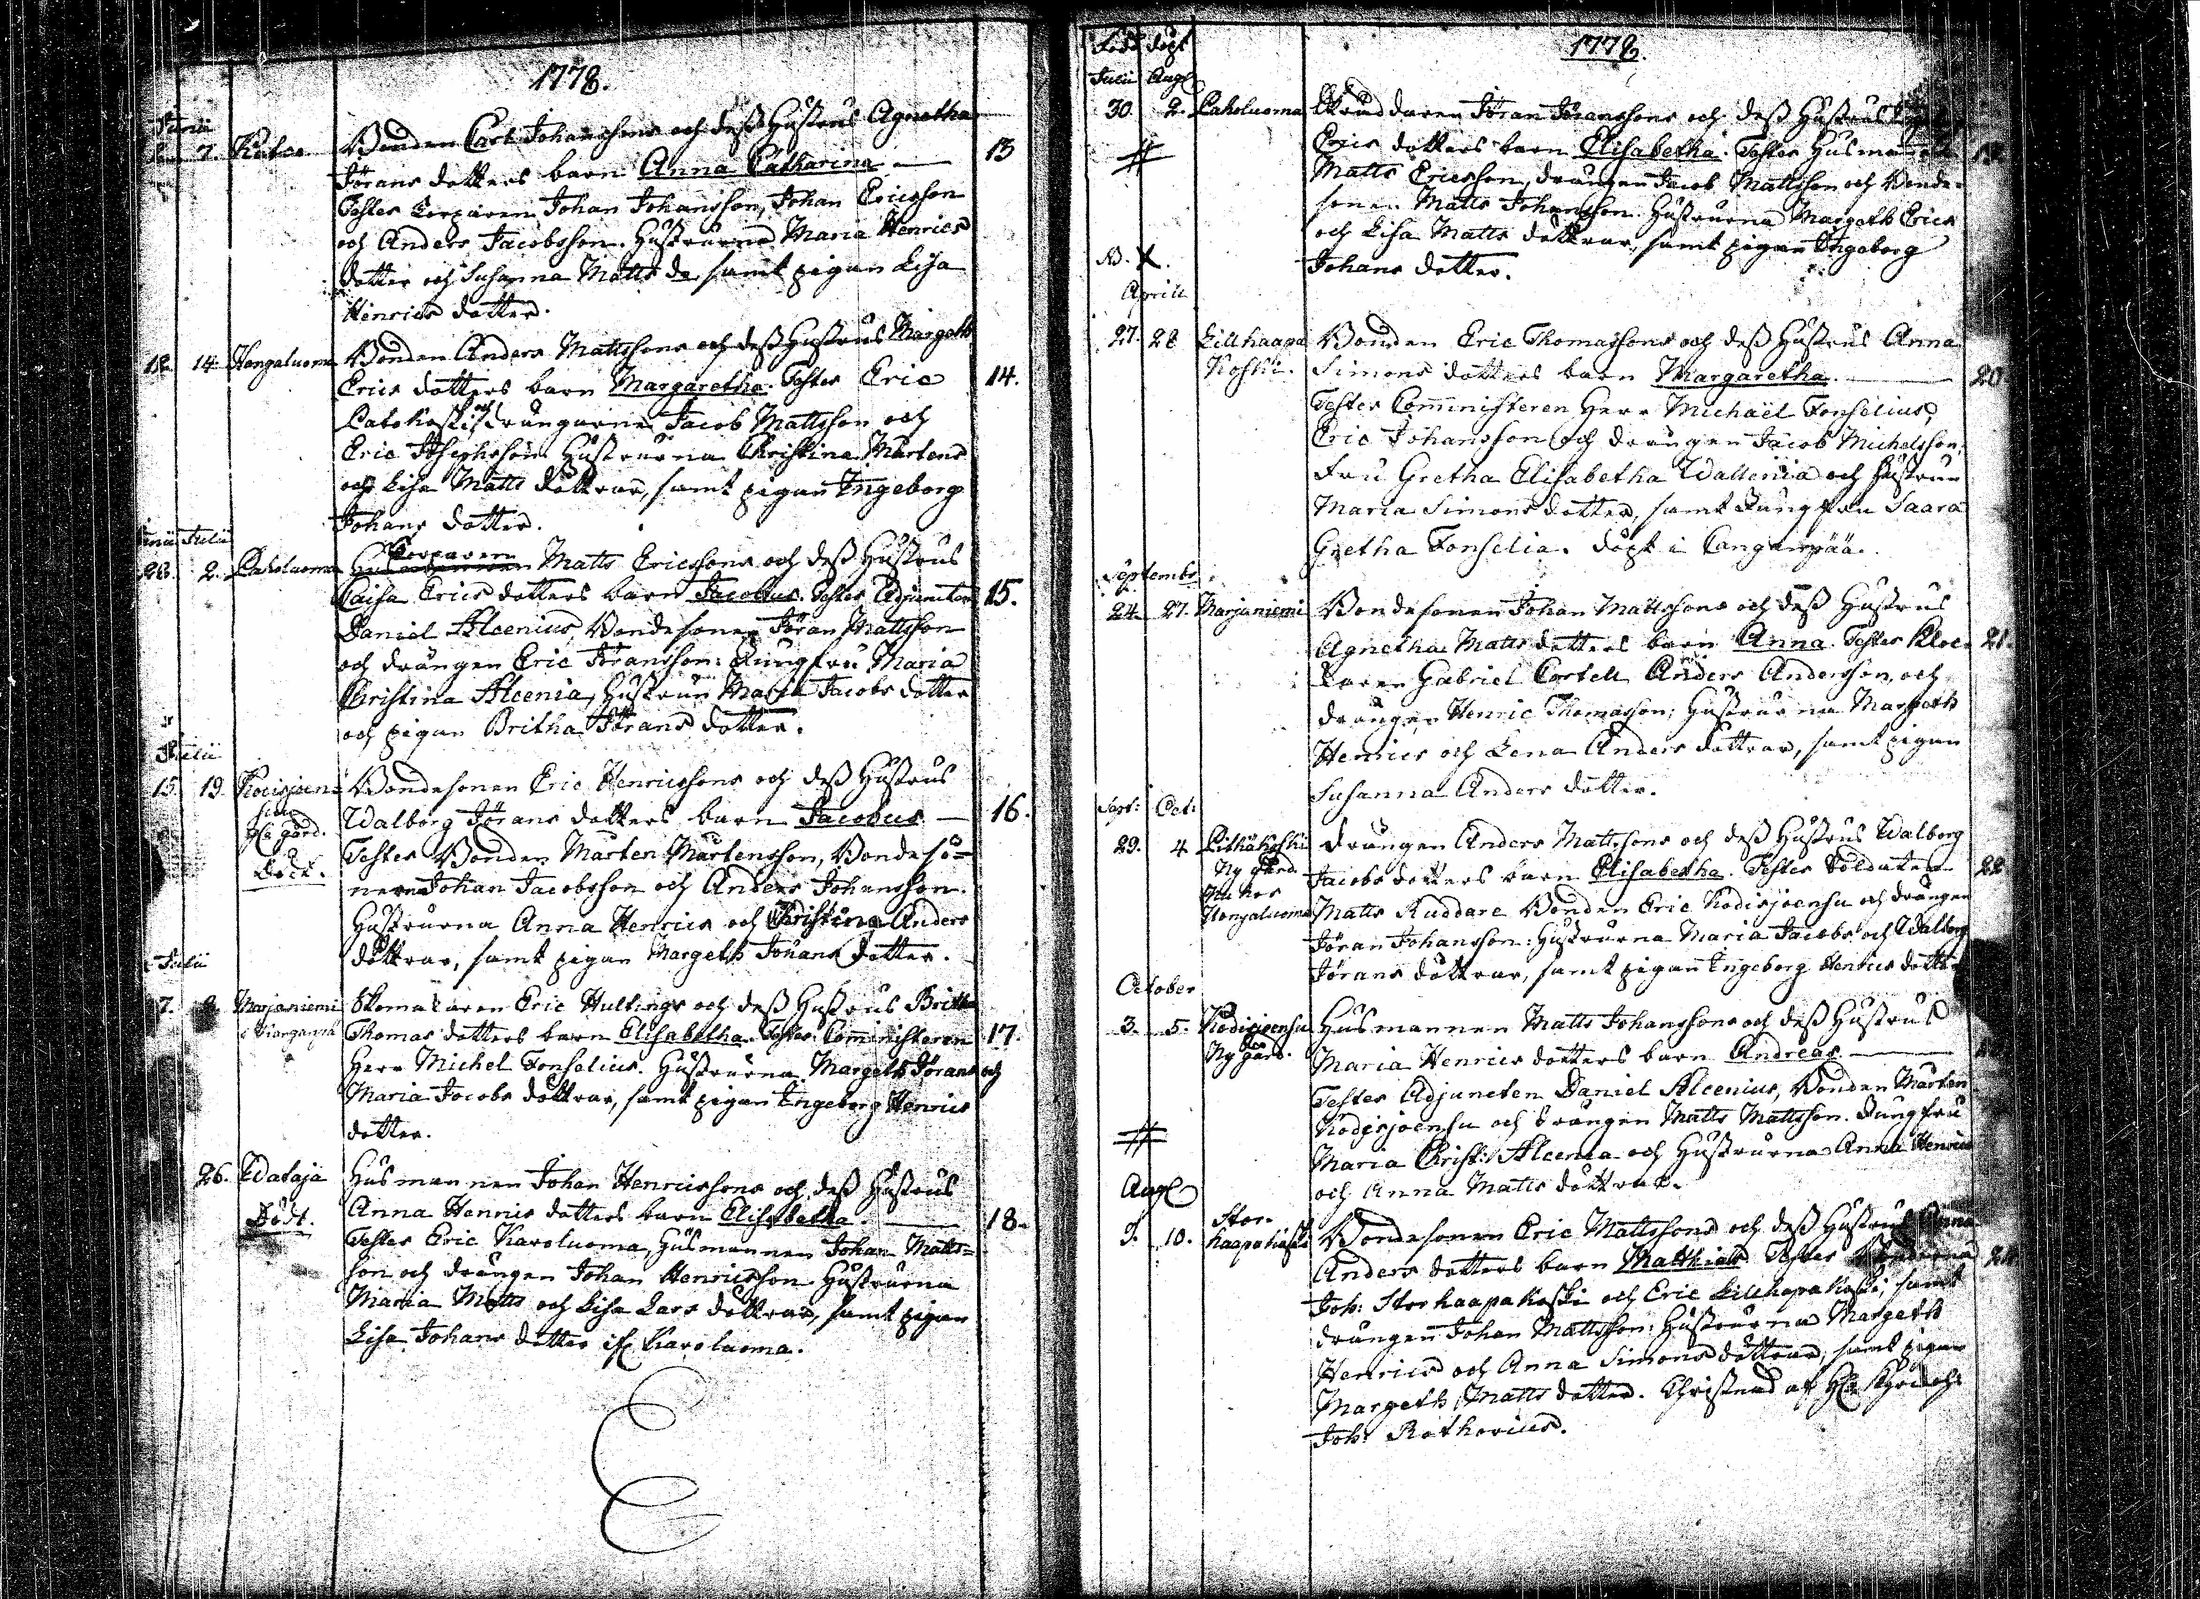 1778.
Junii
7. Kulca Bonden Carl Johanssons och dess Hustrus Agnetha
Jörans dotters barn Anna Catharina — 13
Testes Torparen Johan Johansson, Johan Ericsson
och Anders Jacobsson. Hustrurna Maria Henrics
dotter och Susanna Matts do samt pigan Lisa
Henrics dotter.
12. 14. Hongaluoma Bonden Anders Mattssons och dess Hustrus Margeth
Erics dotters barn Margaretha. Testes Eric 14.
Latokoski, drängarne Jacob Mattsson och
Eric Josephsson. Hustrurna Christina Mårtens
och Lisa Matts döttrar, samt pigan Ingeborg
Johans dotter.
Junii Julii
28. 2. Paholuoma Torparen Matts Ericssons och dess Hustrus
Caisa Erics dotters barn Jacobus. Testes Adjuncten 15.
Daniel Alcenius, Bondesonen Jöran Mattsson
och drängen Eric Jöransson: Jungfru Maria
Christina Alcenia, Hustrun Maria Jacobs dotter
och pigan Britha Jörans dotter.
Julii
15. 19. Koisjoen Bondesonen Eric Henricssons och dess Hustrus
Walborg Jörans dotters barn Jacobus — 16.
gård. Testes Bonden Mårten Mårtensson, Bondesö=
Död. nerne Johan Jacobsson och Anders Johansson.
Hustrurna Anna Henrics och Christina Anders
döttrar, samt pigan Margeth Johans dotter.
Julii
7. Marjaniemi Skomakaren Eric Hultings och dess Hustrus Britha
i Kanganpä Thomas dotters barn Elisabetha. Testes Comministeren 17.
Herr Michel Fonselius. Hustrurna Margeth Jörans och
Maria Jacobs döttrar, samt pigan Ingeborg Henrics
dotter.
26. Wataja Husmannen Johan Henricssons och dess Hustrus
Död. Anna Henrics dotters barn Elisabetha. — 18.
Testes Eric Karoluoma, Husmannen Johan Matts=
son och drängen Johan Henricsson Hustrurna
Maria Matts och Lisa Lars döttrar, samt pigan
Lisa Johans dotter if Karoluoma.
Född döpt 1778.
Julii Aug
30. 2. Paholuoma Skräddaren Jöran Jöranssons och dess Hustrus
Erics dotters barn Elisabetha. Testes Husmannen 19.
Matts Ericsson, drängen Jacob Mattsson och Bonde-
sonen Matts Johansson. Hustrurna Margeth Erics
och Lisa Matts döttrar, samt pigan Ingeborg
NB. X. Johans dotter.
Aprill
27. 28 Lillhaapa Bonden Eric Thomassons och dess Hustrus Anna
Koski. Simons dotters barn Margaretha. — 20
Testes Comministeren Herr Michaël Fonselius,
Eric Johansson och drängen Jacob Michelsson;
Fru Gretha Elisabetha Wallenia och Hustrun
Maria Simons dotter, samt Jungfru Saara
Gretha Fonselia. döpt i Canganpää.
Septembr.
24. 27. Marjaniemi Bondesonen Johan Mattssons och dess Hustrus
Agnetha Matts dotters barn Anna. Testes Kloc- 21.
karen Gabriel Cortell Anders Andersson, och
drängen Henric Thomasson; Hustrurna Margeth
Henrics och Lena Anders döttrar, samt pigan
Susanna Anders dotter.
Sept: Oct:
29. 4. Pithäkoski drängen Anders Mattssons och dess Hustrus Walborg
Ny gård Jacobs dotters barn Elisabetha. Testes Soldaten 22
nu hos
Hongaluoma Matts Ruddare Bonden Eric Kodisjoensu och drängen
Jöran Johansson: Hustrurna Maria Jacobs och Walborg
Jörans döttrar, samt pigan Ingeborg Henrics dotter
October
3. 5. Kodisjoensu Husmannen Matts Johanssons och dess Hustrus
Ny gård. Maria Henrics dotters barn Andreas. —
Testes Adjuncten Daniel Alcenius, Bonden Mårten
Kodisjoensu och drängen Matts Mattsson. Jungfru
Maria Christ: Alcenia och Hustrurna Anna Henrics
och Anna Matts döttrar.
Aug
9. 10. Stor-
haapakoski Bondesonen Eric Mattssons och dess Hustrus Anna
Anders dotters barn Matthias Testes Bönderna 24
Joh: Storhaapakoski och Eric Lillhapakoski; samt
drängen Johan Mattsson: Hustrurna Margeth
Henrics och Anna Simons döttrar, samt pigan
Margeth Matts dotter. Christnad af
Joh: Rothovius.